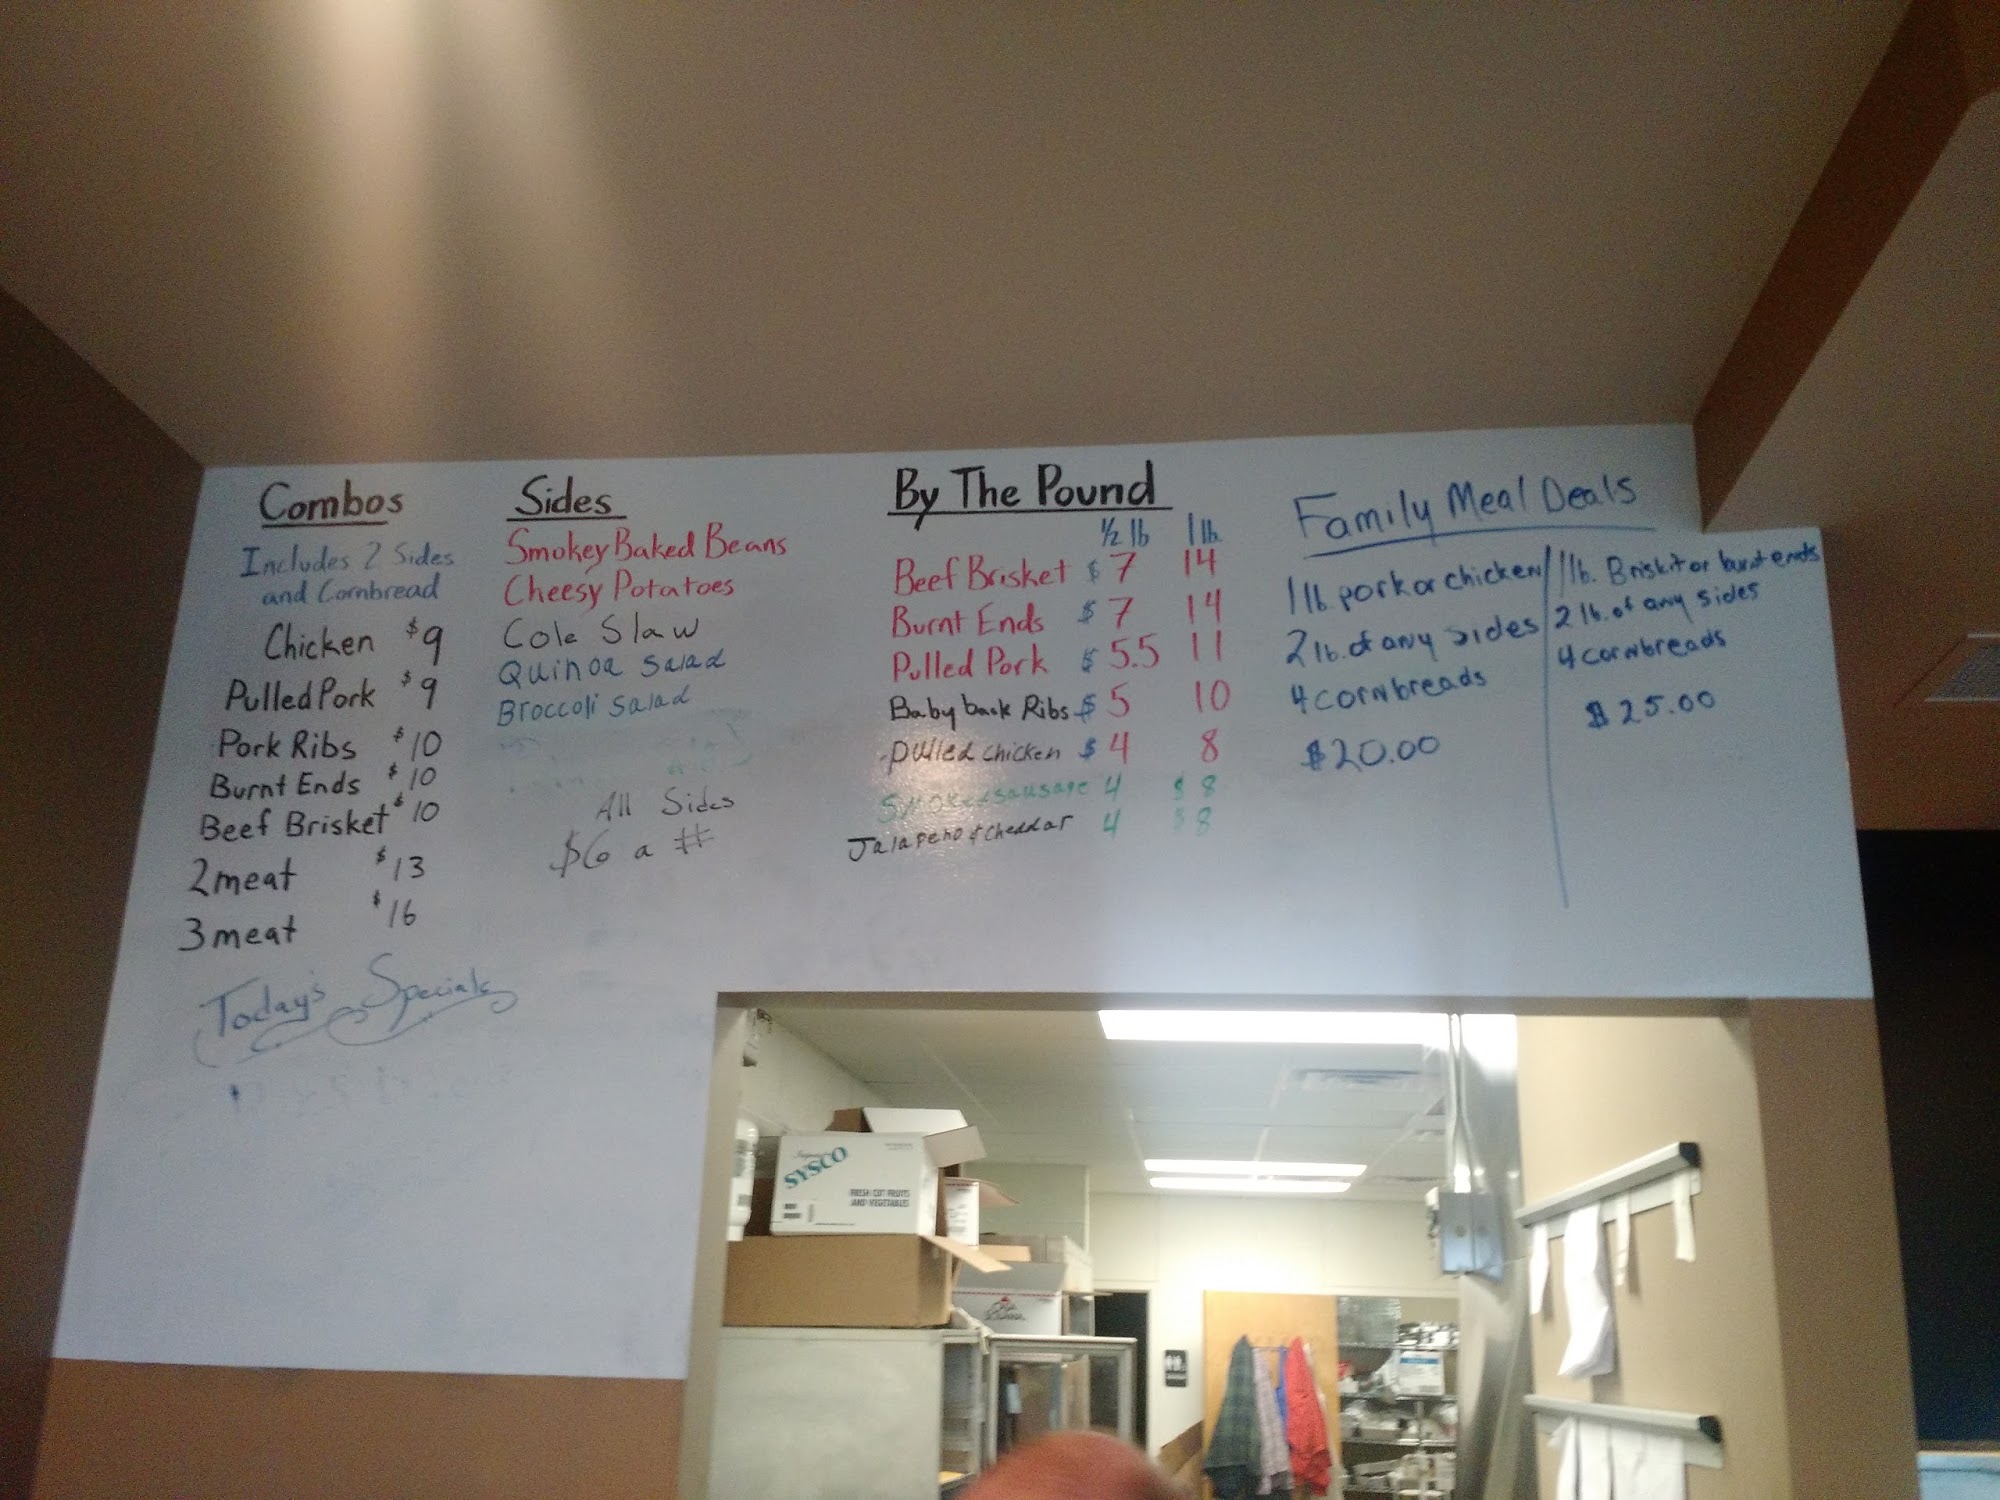 Combos
Includes 2 Sides
and Cornbread
Chicken $9
Pulled Pork $9
Pork Ribs $10
Burnt Ends $10
Beef Brisket $10
2 meat $13
3 meat $16
Today's Specials
Sides
Smokey Baked Beans
Cheesy Potatoes
Cole Slaw
Quinoa Salad
Broccoli Salad
All Sides
$6 a #
By The Pound
1/2 lb 1 lb.
Beef Brisket $ 7 14
Burnt Ends $ 7 14
Pulled Pork $ 5.5 11
Baby back Ribs $ 5 10
Pulled chicken $ 4 8
Smoked sausage 4 $ 8
Jalapeno & cheddar 4 $ 8
Family Meal Deals
1 lb pork or chicken
2 lb. of any sides
4 cornbreads
$20.00
1 lb. Briskit or burnt ends
2 lb. of any sides
4 cornbreads
$25.00
SYSCO
FRESH CUT FRUITS
AND VEGETABLES